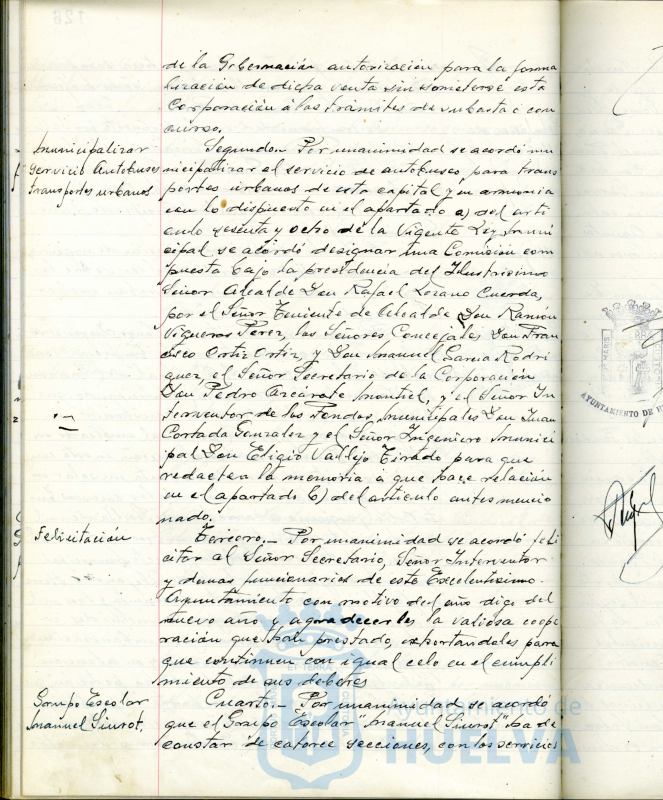 de la Gobernación autorización para la forma
lización de dicha venta sin someterse esta
Corporación á los trámites de subasta ó con
curso.
Municipalizar
Servicio Autobuses
transportes urbanos
Segundo.- Por unanimidad se acordó mu
nicipalizar el servicio de autobuses, para trans
portes urbanos de esta capital y en armonia
con lo dispuesto en el apartado a) del arti
culo sesenta y ocho de la Vigente Ley Muni
cipal se acordó designar una Comisión com
puesta bajo la presidencia del Ilustrisimo
Señor Alcalde Don Rafael Lozano Cuerda,
por el Señor Teniente de Alcalde Don Ramón
Vigueras Perez, los Señores Concejales Don Fran
cisco Ortiz Ortiz, y Don Manuel Garcia Rodri
guez, el Señor Secretario de la Corporación
Don Pedro Azcárate Montiel, y el Señor In
terventor de los Fondos Municipales Don Juan
Cortada Gonzalez y el Señor Ingeniero Munici
pal Don Eligio Vallejo Tirado para que
redacten la memoria a que hace relación
en el apartado b) del articulo antes mencio
nado.
Felicitación
Tercero.- Por unanimidad se acordó feli
citar al Señor Secretario, Señor Interventor
y demas funcionarios de este Excelentisimo
Ayuntamiento con motivo del año digo del
nuevo año y agradecerles la valiosa coope
ración que han prestado, exhortandoles para
que continuen con igual celo en el cumpli
miento de sus deberes
Grupo Escolar
Manuel Siurot.
Cuarto.- Por unanimidad se acordó
que el Grupo Escolar "Manuel Siurot" ha de
constar de catorce secciones, con los servicios
AYUNTAMIENTO DE
Ayuntamiento de
HUELVA